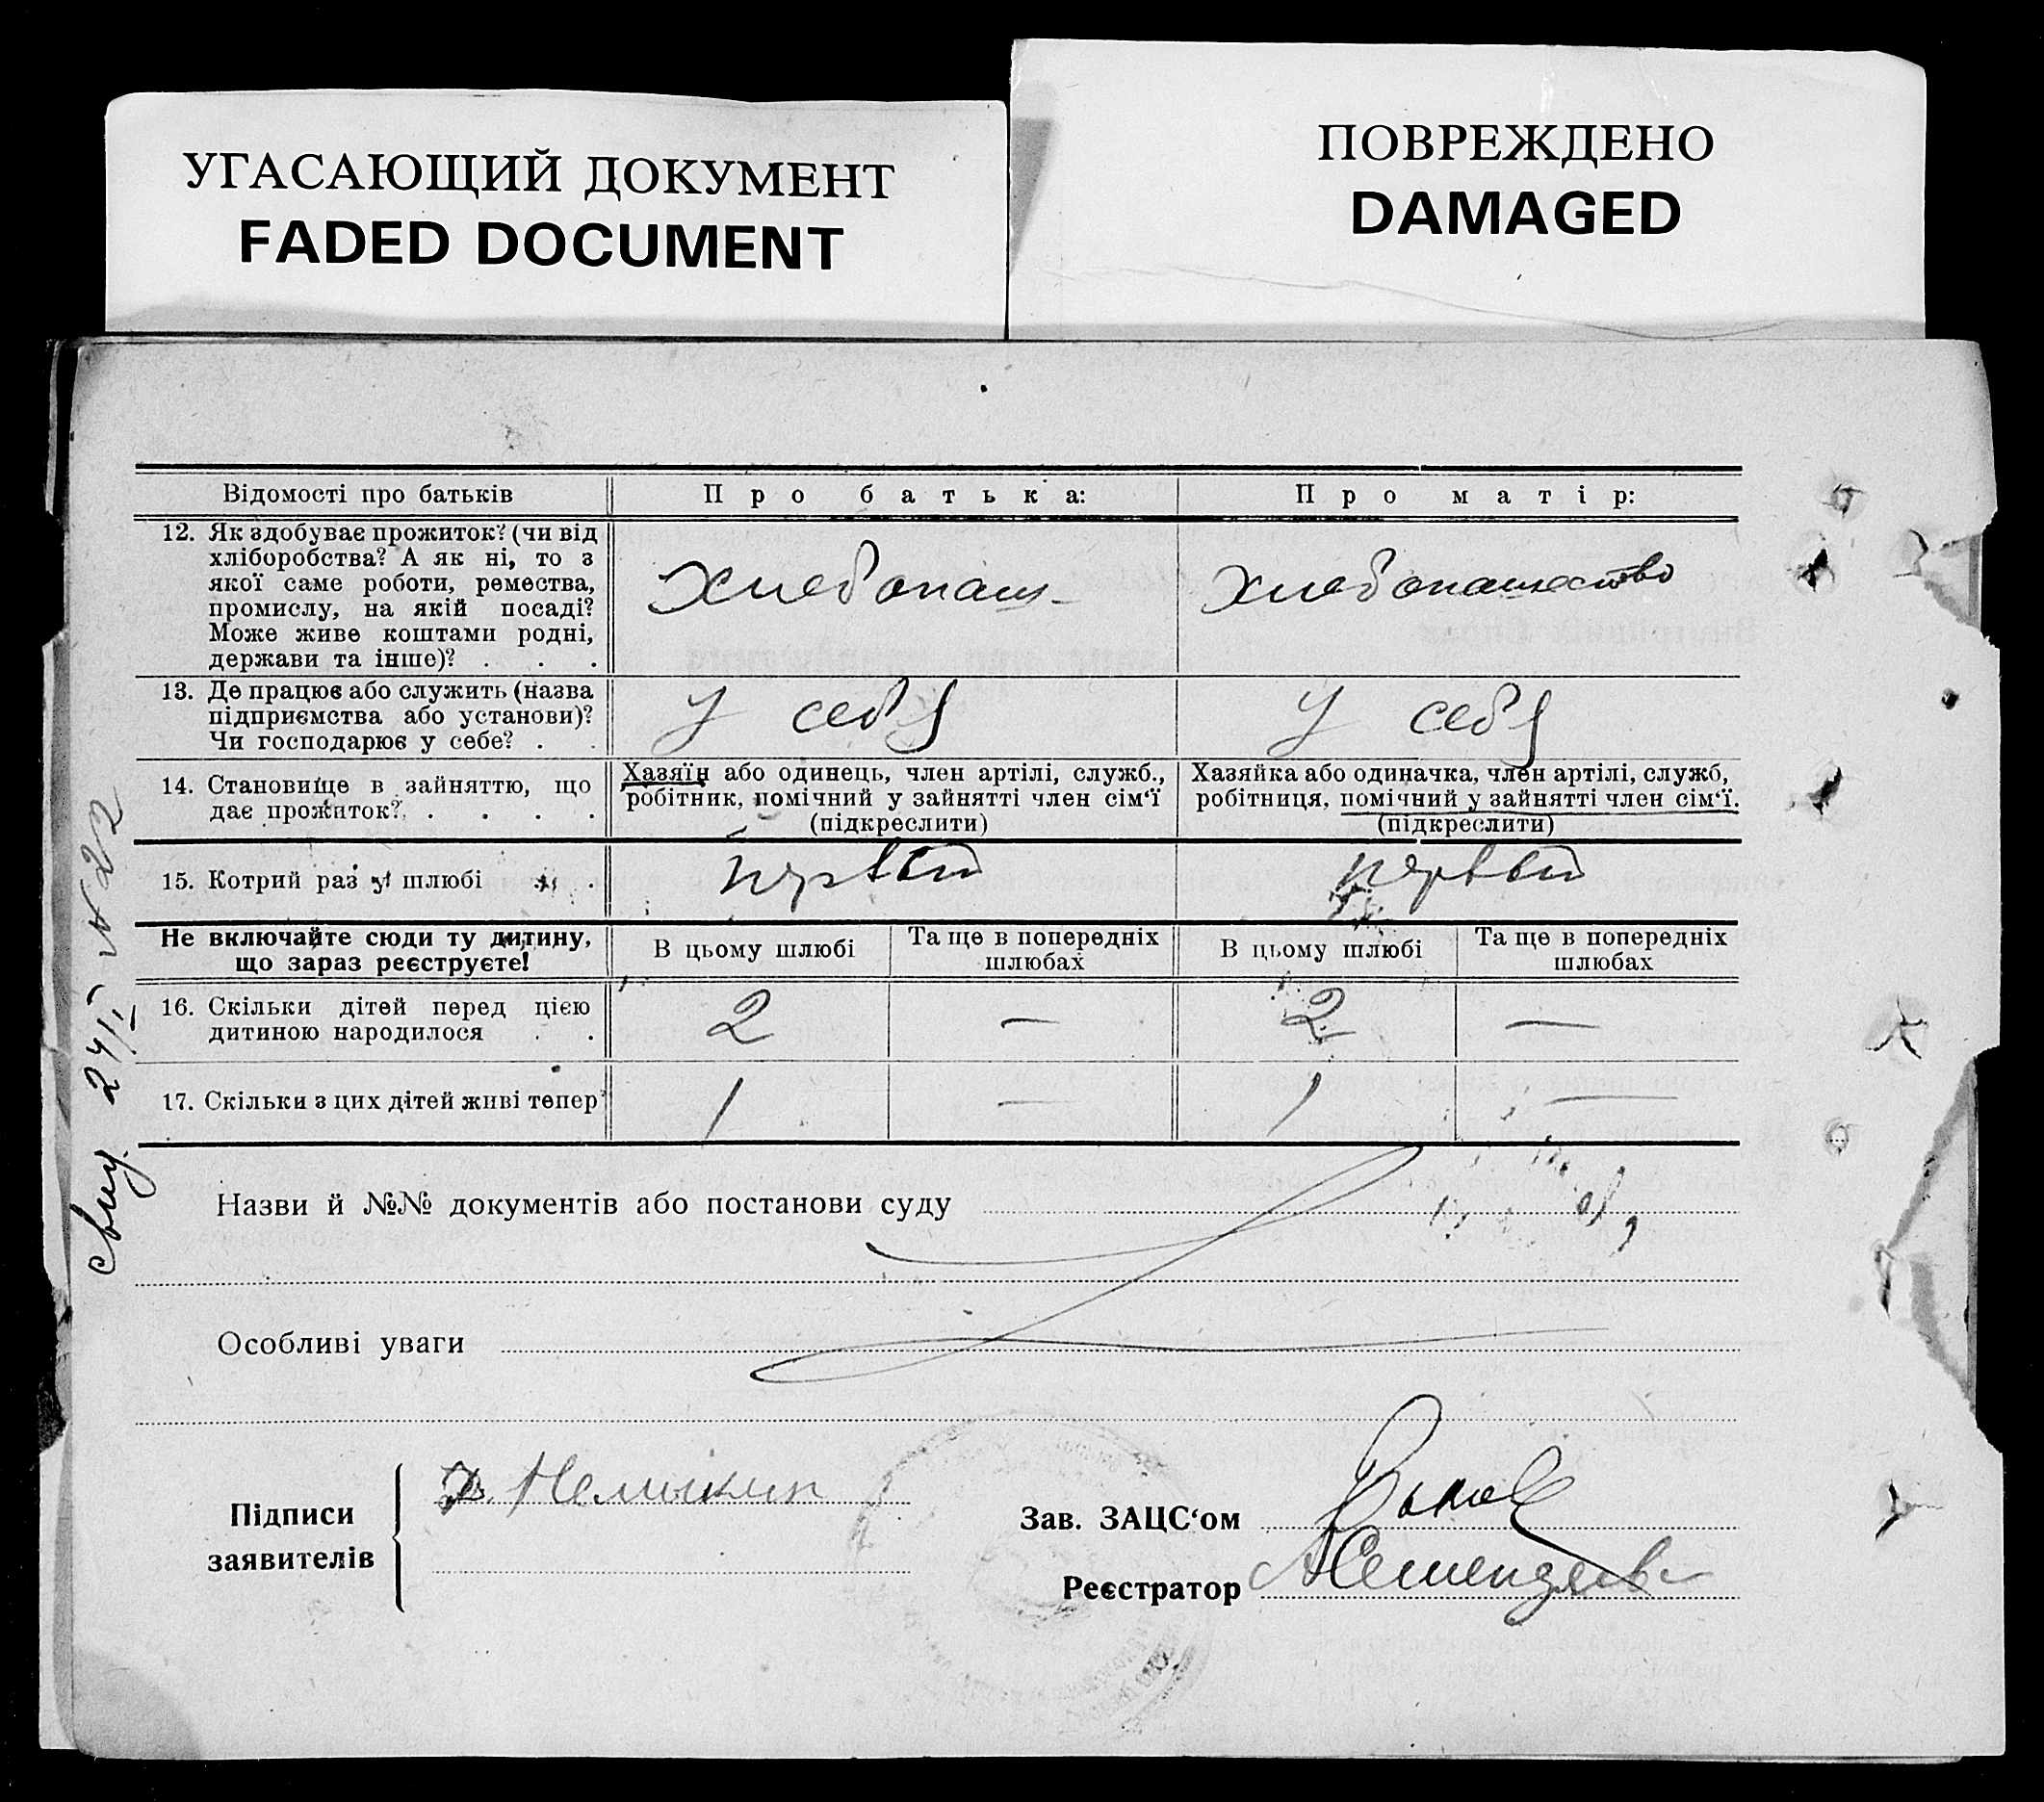 УГАСАЮЩИЙ ДОКУМЕНТ
FADED DOCUMENT
ПОВРЕЖДЕНО
DAMAGED
Відомості про батьків
Про батька:
Про матір:
12. Як здобуває прожиток? (чи від
хліборобства? А як ні, то з
якої саме роботи, ремества,
промислу, на якій посаді?
Може живе коштами родні,
держави та інше)? . . .
Хлебопаш-
Хлебопашество
13. Де працює або служить (назва
підприємства або установи)?
Чи господарює у себе? . .
У себя
У себя
14. Становище в зайняттю, що
дає прожиток? . . . .
Хазяїн або одинець, член артілі, служб.,
робітник, помічний у зайнятті член сім‘ї
(підкреслити)
Хазяйка або одиначка, член артілі, служб,
робітниця, помічний у зайнятті член сім‘ї.
(підкреслити)
15. Котрий раз у шлюбі . .
первый
первый
Не включайте сюди ту дитину,
що зараз реєструєте!
В цьому шлюбі
Та ще в попередніх
шлюбах
В цьому шлюбі
Та ще в попередніх
шлюбах
16. Скільки дітей перед цією
дитиною народилося . .
2
—
2
—
17. Скільки з цих дітей живі тепер
1
—
1
—
Назви й №№ документів або постанови суду
Особливі уваги
Підписи
заявителів
Зав. ЗАЦС‘ом
Реєстратор
свид. 24/I № 22